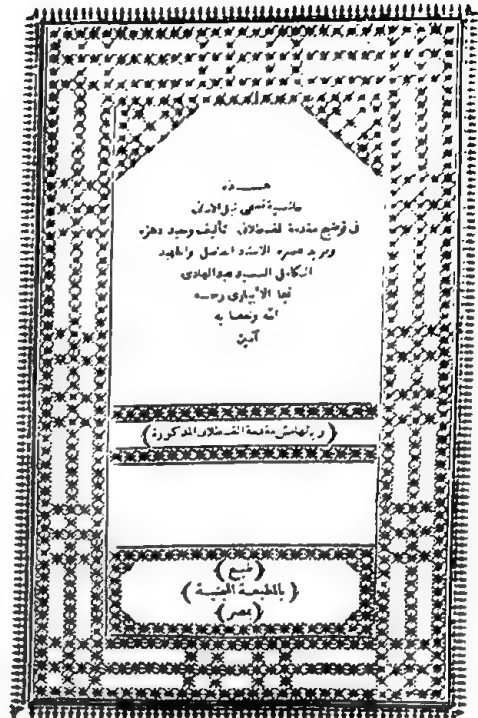 هـــذه
حاشية تسمى نيل الامانى
فى توضيح مقدمة القسطلانى تأليف وحيد دهره
وفريد عصره الاستاذ الفاضل والجهبذ
الكامل السيد عبدالهادى
نجا الأبيارى رحمه
الله ونفعنا به
آمين
(وبهامش مقدمة القسطلانى المذكورة)
(طبع)
(بالمطبعة الميمنية)
(بمصر)